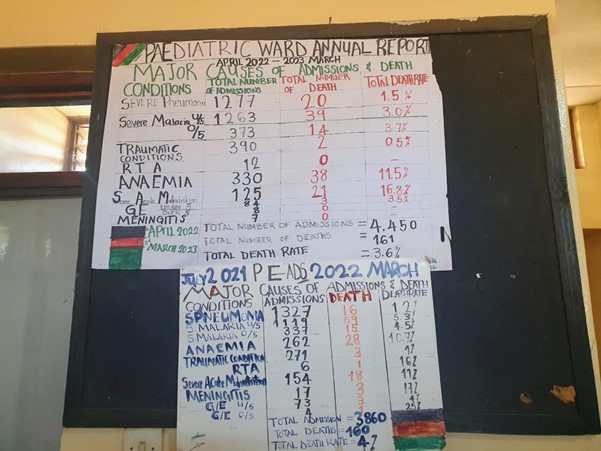 PAEDIATRIC WARD ANNUAL REPORT
APRIL 2022 - 2023 MARCH
MAJOR CAUSES OF ADMISSIONS & DEATH
CONDITIONS TOTAL NUMBER OF ADMISSIONS TOTAL NUMBER OF DEATH TOTAL DEATH RATE
SEVERE Pneumonia 1277 20 1.5%
Severe Malaria u/5 1263 39 3.0%
o/5 373 14 3.7%
TRAUMATIC CONDITIONS 390 2 0.5%
RTA 12 0 -
ANAEMIA 330 38 11.5%
Severe Acute Malnutrition 125 21 16.8%
GE under 5 3 3.5%
0 -
MENINGITIS 7 0 -
TOTAL NUMBER OF ADMISSIONS = 4,450
TOTAL NUMBER OF DEATHS = 161
TOTAL DEATH RATE = 3.6%
APRIL 2022
MARCH 2023
JULY 2021 PEADS 2022 MARCH
MAJOR CAUSES OF ADMISSIONS & DEATH
CONDITIONS ADMISSIONS DEATH DEATH RATE
S PNEUMONIA 1327 16 1.2%
S MALARIA u/5 1119 59 5.3%
S MALARIA O/5 337 15 4.5%
ANAEMIA 262 28 10.7%
TRAUMATIC CONDITION 271 3 1%
RTA 6 1 16%
Severe Acute Malnutrition 154 18 11%
MENINGITIS 17 3 17%
G/E u/5 73 3 4%
G/E O/5 4 1 25%
TOTAL ADMISSION = 3860
TOTAL DEATHS = 160
TOTAL DEATH RATE = 4%